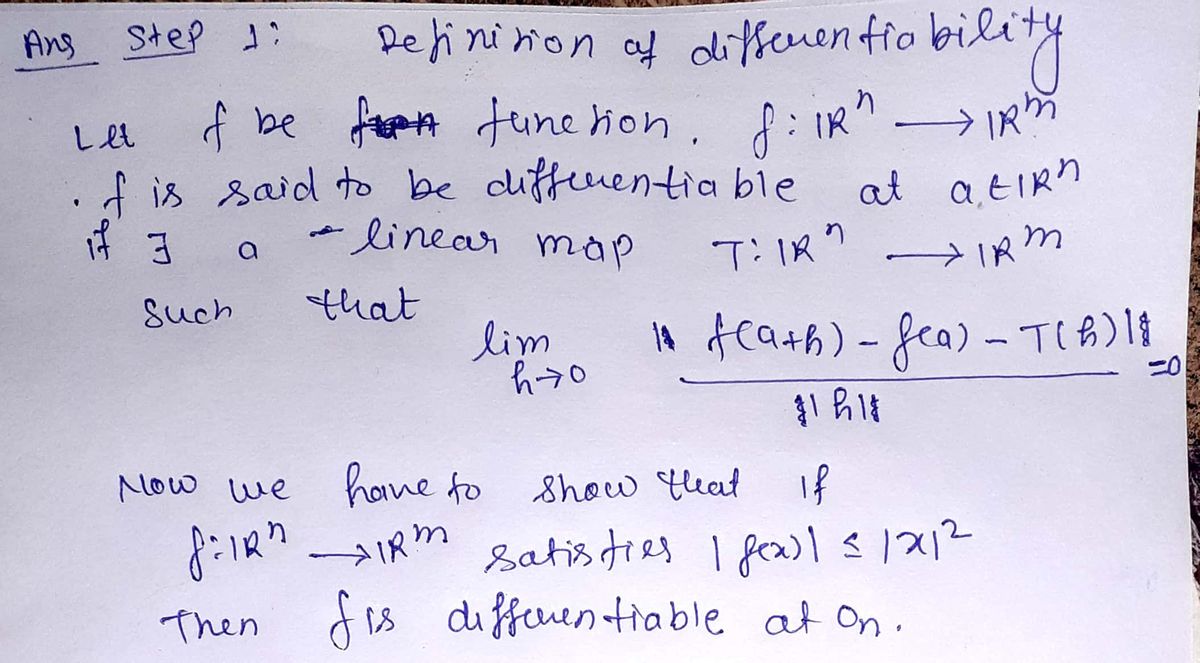 Ans Step 1: Definition of differentiability
Let f be function. f: ℝⁿ → ℝᵐ
. f is said to be differentiable at a ∈ ℝⁿ
if ∃ a linear map T: ℝⁿ → ℝᵐ
such that
lim h→0 || f(a+h) - f(a) - T(h) || / || h || = 0
Now we have to show that if
f: ℝⁿ → ℝᵐ satisfies | f(x) | ≤ |x|²
Then f is differentiable at 0n.